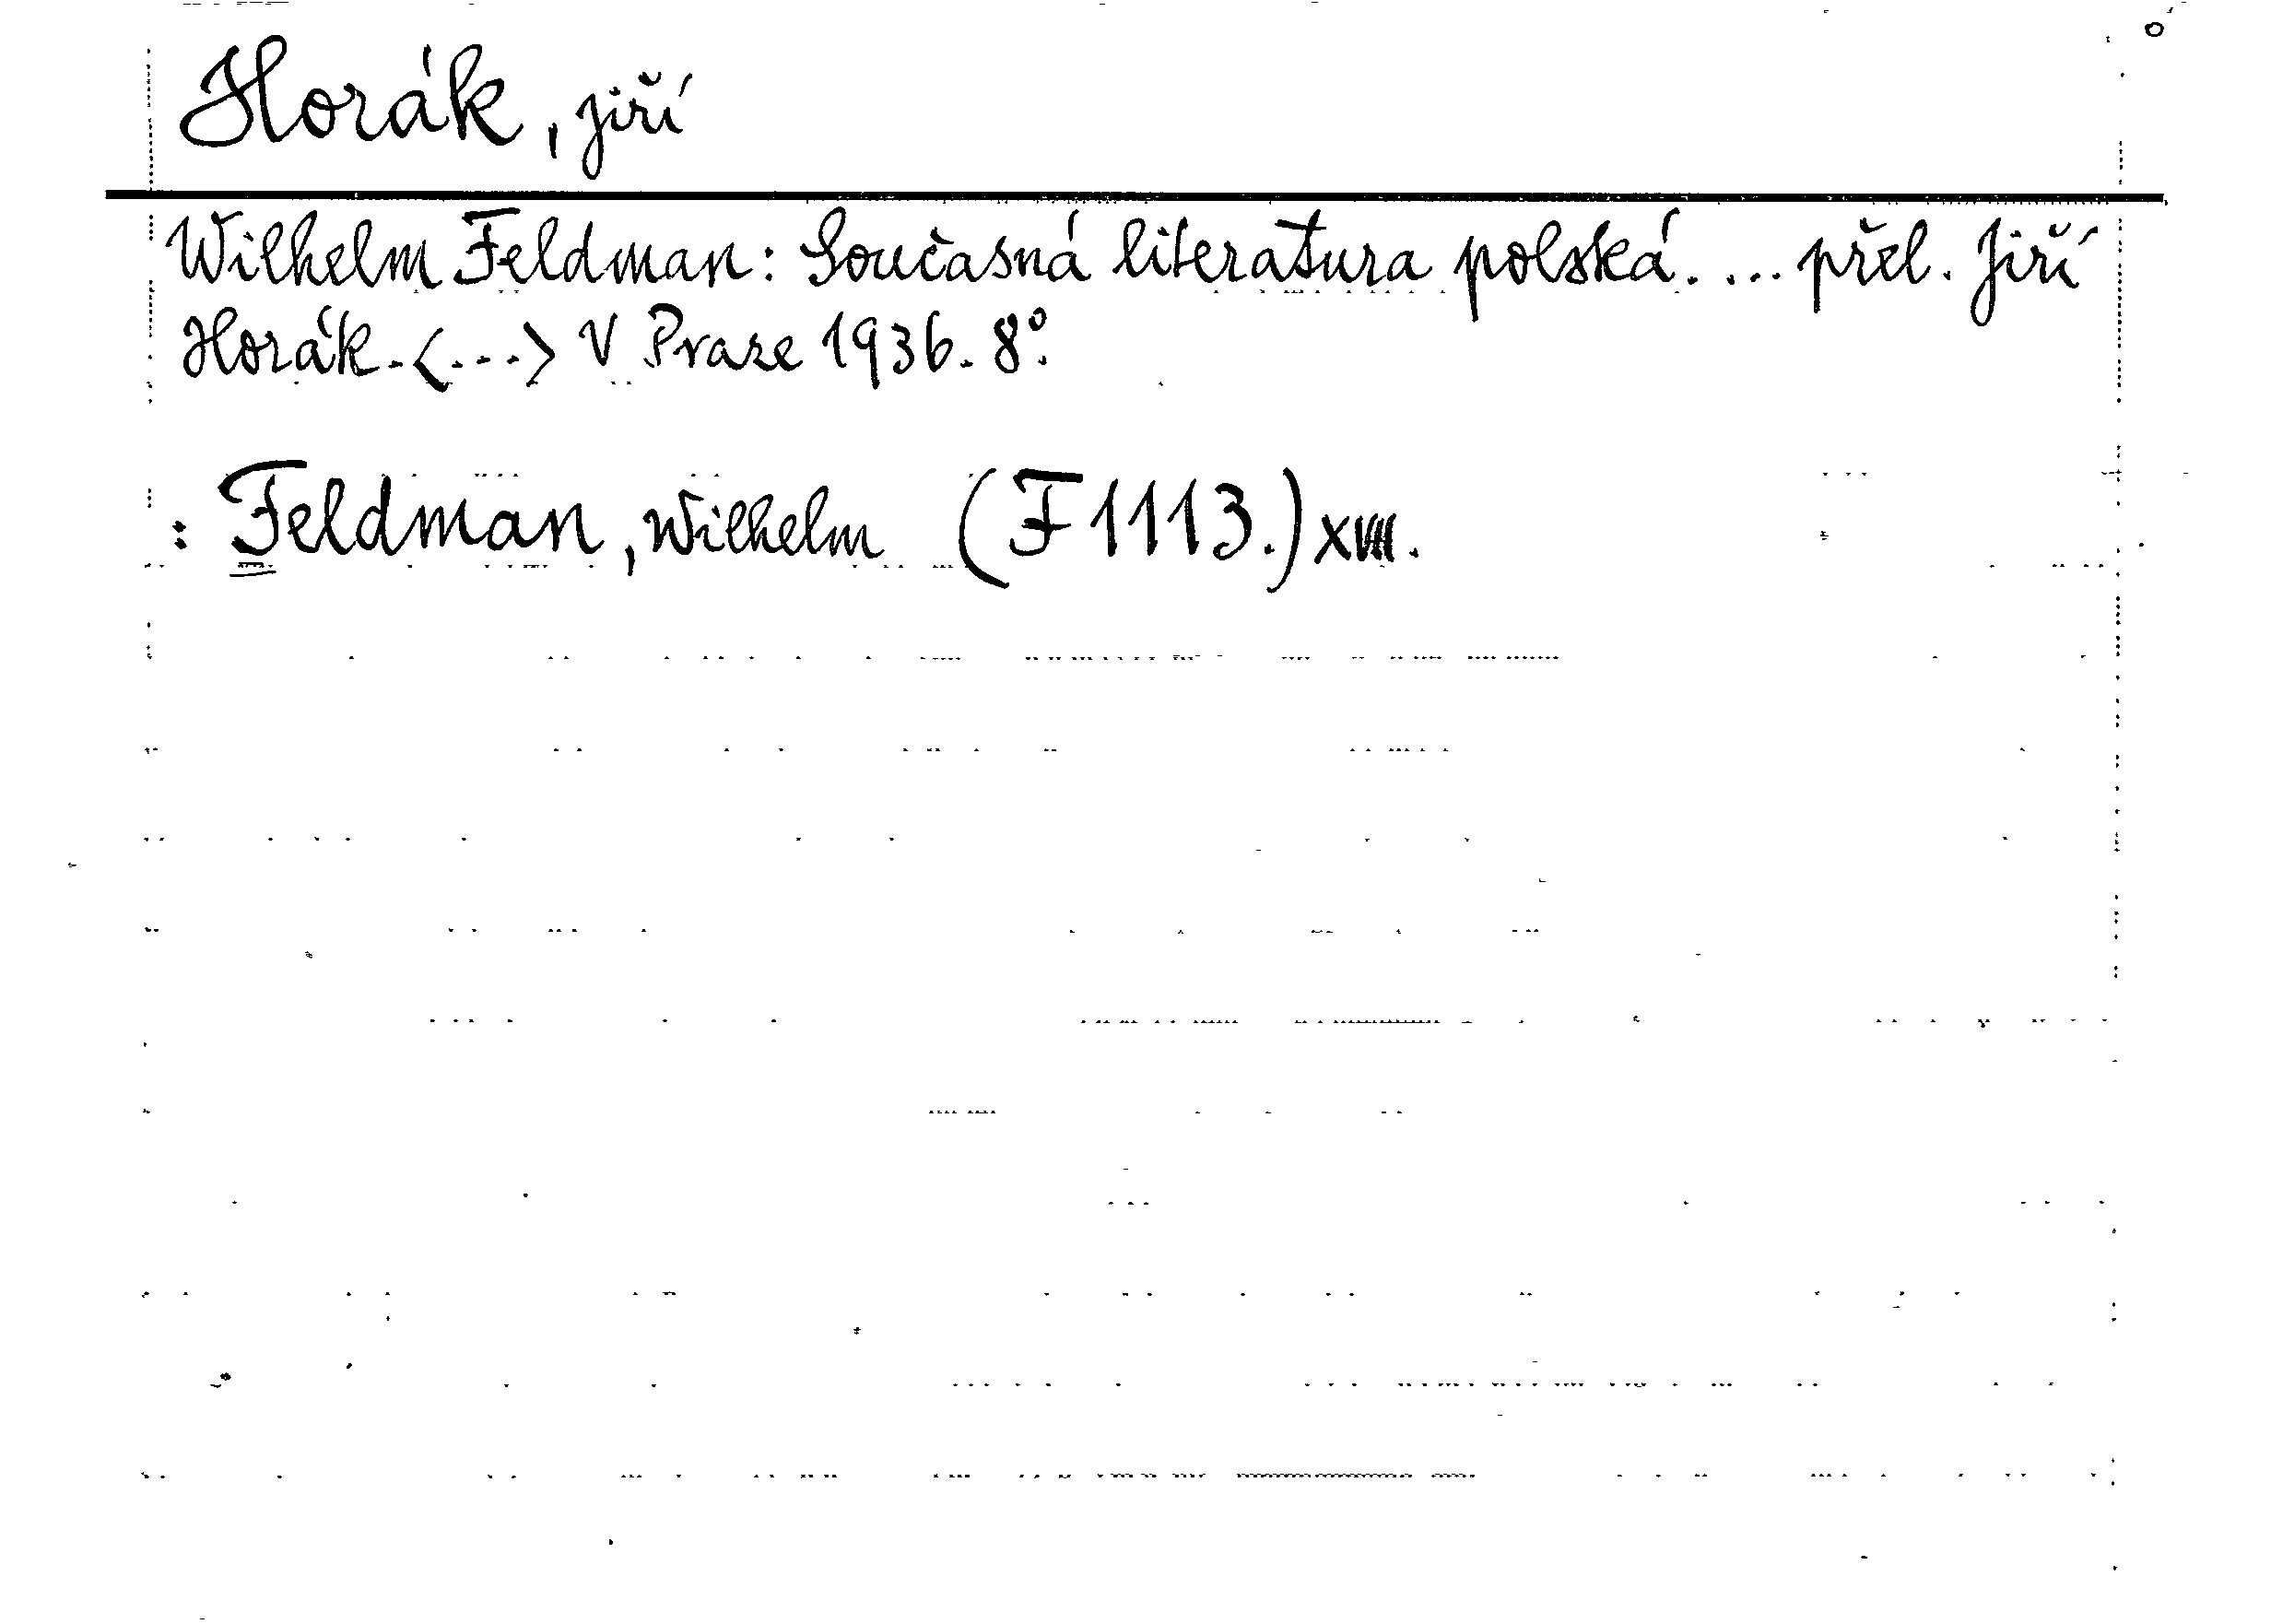 Horák, Jiří
Wilhelm Feldman: Současná literatura polská. ... přel. Jiří
Horák. <...> V Praze 1936. 8°.
: Feldman, Wilhelm (F 1113.) XVIII.